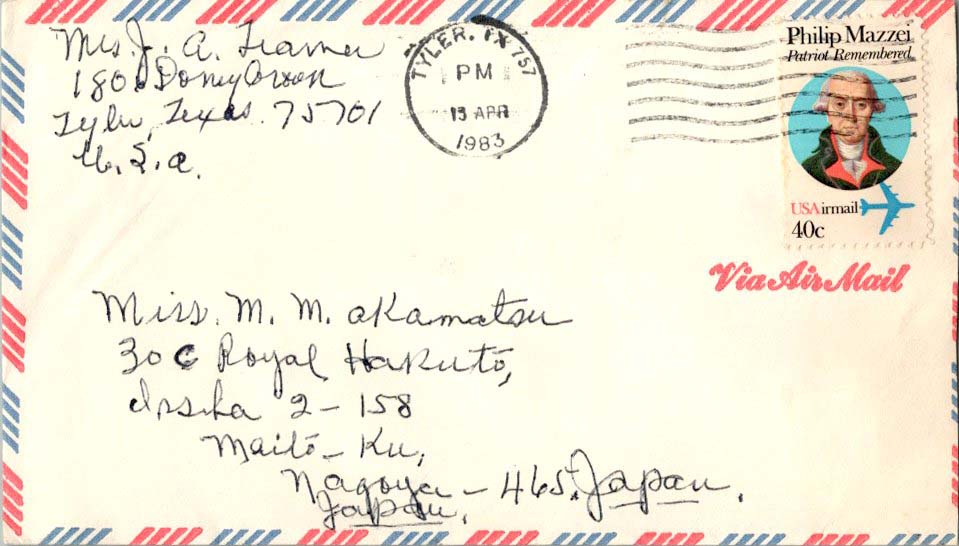 Mrs. J. A. Framer
1806
Tyler, Texas. 75701
U. S. a.
TYLER, TX 757
PM
13 APR
1983
Philip Mazzei
Patriot Remembered
USAirmail
40c
Via Air Mail
Miss. M. M. aKamatsu
30 C Royal Hakutō,
Issha 2 - 158
Maitō - Ku,
Nagoya - 465. Japan.
Japan.